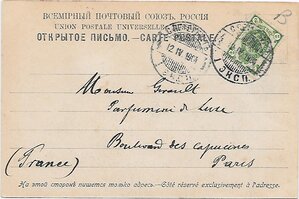 ВСЕМІРНЫЙ ПОЧТОВЫЙ СОЮЗЪ. РОССІЯ
UNION POSTALE UNIVERSELLE.
ОТКРЫТОЕ ПИСЬМО.—CARTE POSTALE.
Monsieur Girault
Parfumerie de Luxe
Boulevard des Capucines
(France) Paris
На этой сторонѣ пишется только адресъ.—Côté réservé exclusivement à l'adresse.